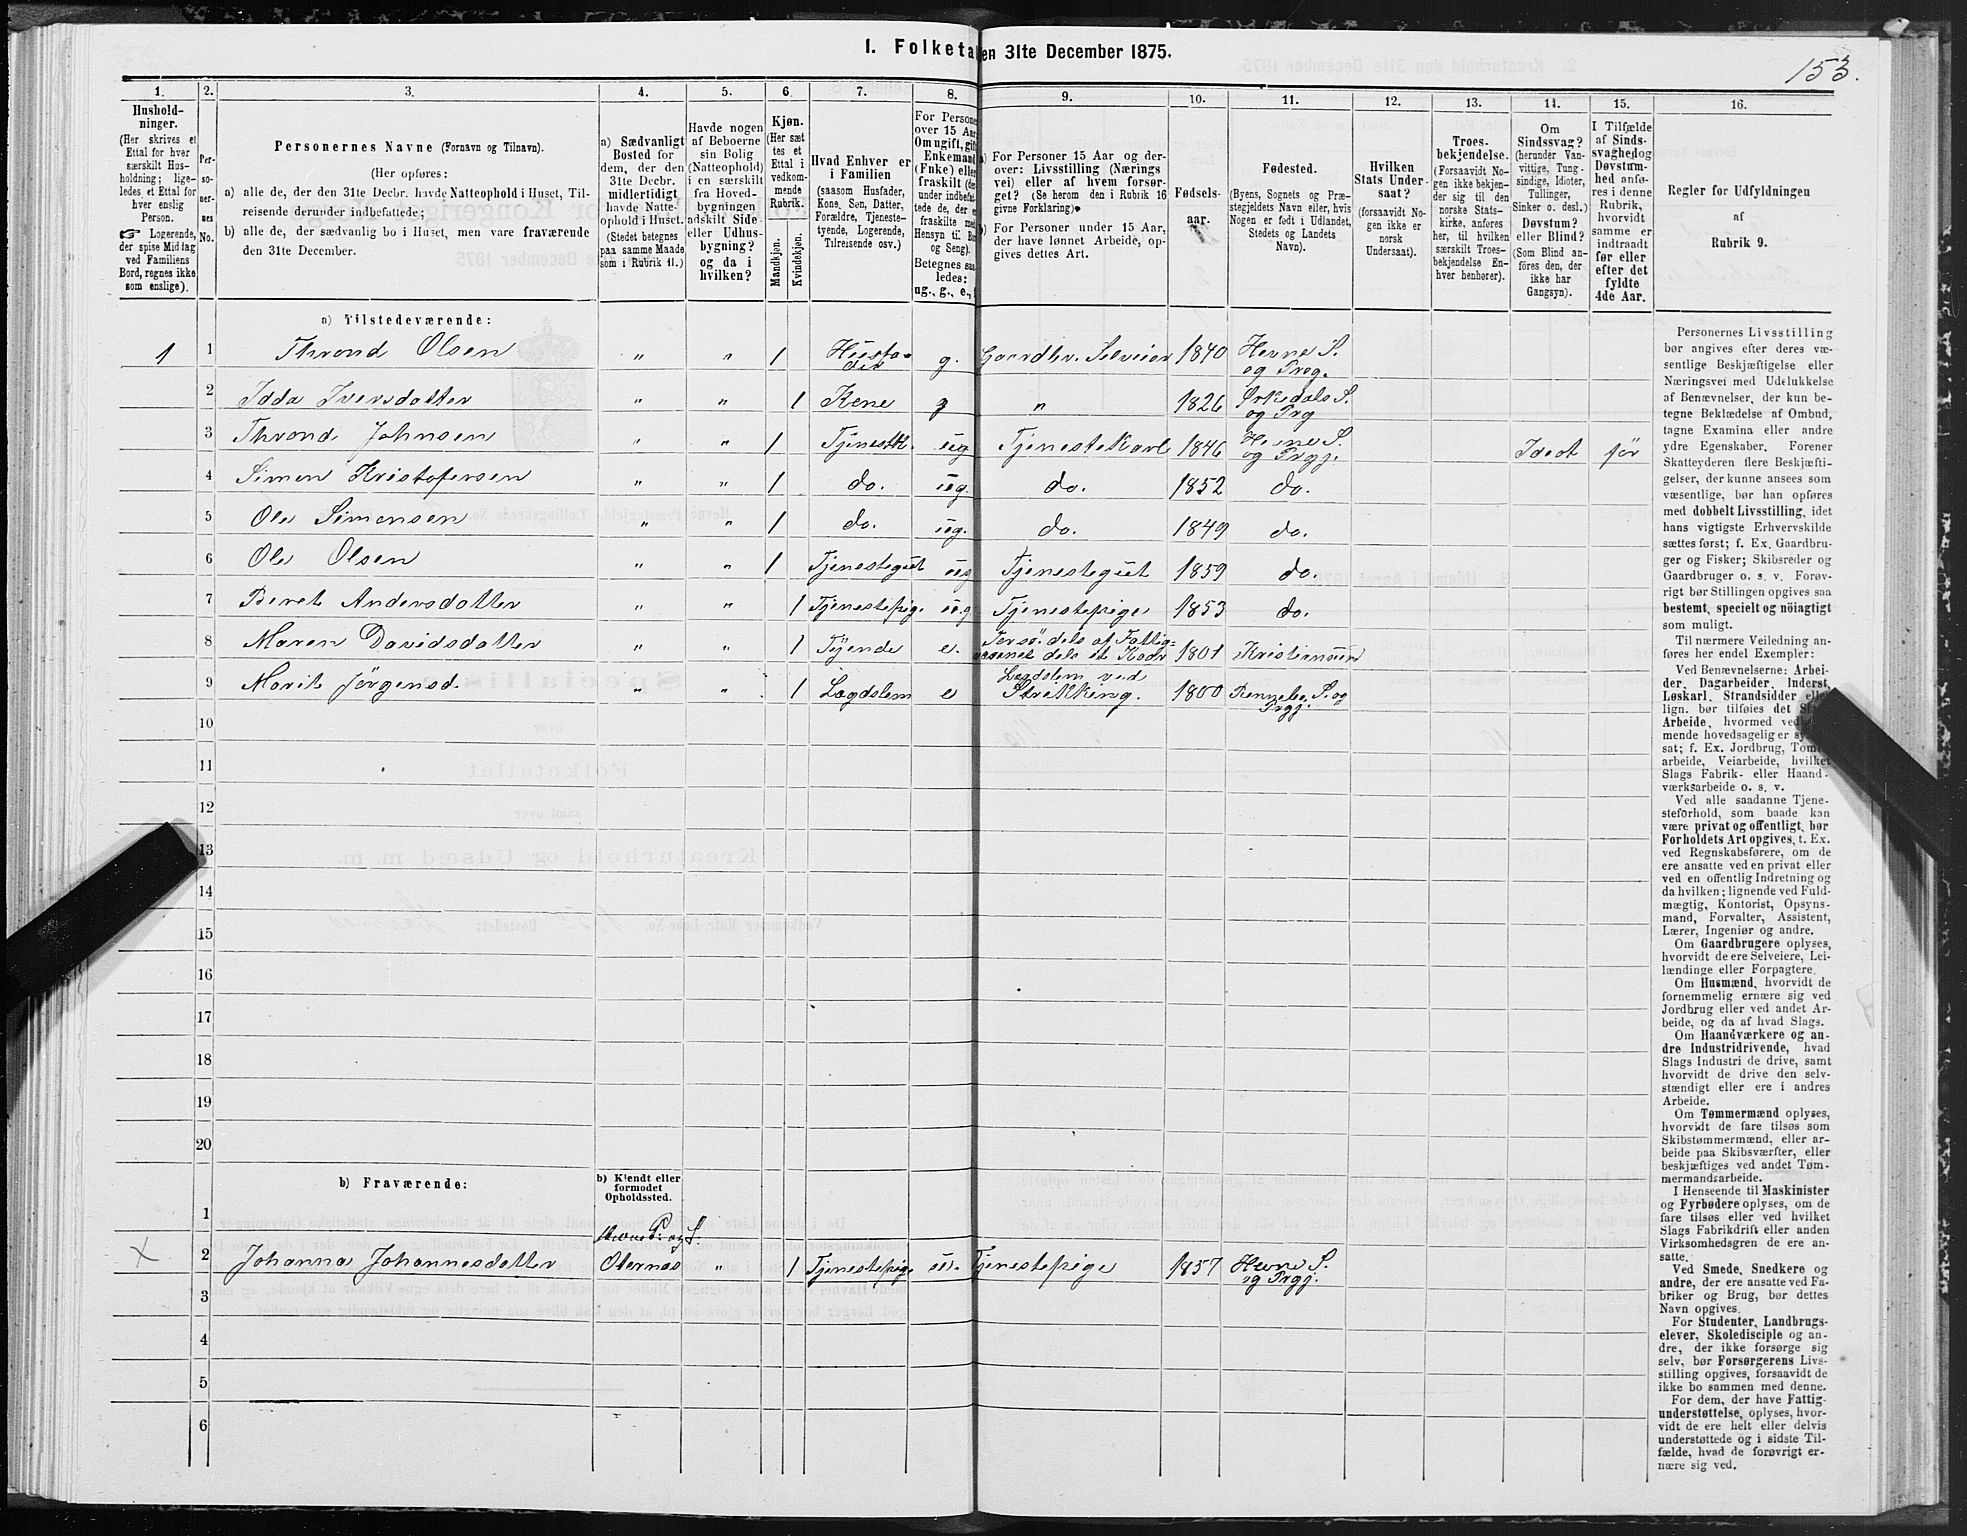 1. Folketal den 31te December 1875.
153.
1. 2. 3. 4. 5. 6. 7. 8. 9. 10. 11. 12. 13. 14. 15. 16.
Hushold-
ninger.
(Her skrives et
Ettal for hver
særskilt Hus-
holdning; lige-
ledes et Ettal for
hver enslig
Person.
☞ Logerende,
der spise Middag
ved Familiens
Bord, regnes ikke
som enslige).
Per-
so-
ner-
nes
No.
Personernes Navne (Fornavn og Tilnavn).
(Her opføres:
a) alle de, der den 31te Decbr. havde Natteophold i Huset, Til-
reisende derunder indbefattede;
b) alle de, der sædvanlig bo i Huset, men vare fraværende
den 31te December.
a) Sædvanligt
Bosted for
dem, der den
31te Decbr.
midlertidigt
havde Natte-
ophold i Huset.
(Stedet betegnes
paa samme Maade
som i Rubrik 11.)
Havde nogen
af Beboerne
sin Bolig
(Natteophold)
i en særskilt
fra Hoved-
bygningen
adskilt Side-
eller Udhus-
bygning?
og da i
hvilken?
Kjøn.
(Her sæt
tes et
Ettal i
vedkom-
mende
Rubrik.
Mandkjøn.
Kvindekjøn.
Hvad Enhver er
i Familien
(saasom Husfader,
Kone, Søn, Datter,
Forældre, Tjeneste-
tyende, Logerende,
Tilreisende osv.)
For Persone
over 15 Aar
Om ugift, gift
Enkemand
(Enke) elle
fraskilt
Betegnes saa
ledes:
ug., g., e.,
a) For Personer 15 Aar og der-
over: Livsstilling (Nærings
vei) eller af hvem forsør-
get? (Se herom den i Rubrik 16
givne Forklaring).
b) For Personer under 15 Aar,
der have lønnet Arbeide, op-
gives dettes Art.
Fødsels-
aar.
Fødested.
(Byens, Sognets og Præ-
stegjeldets Navn eller, hvis
Nogen er født i Udlandet,
Stedets og Landets
Navn).
Hvilken
Stats Under-
saat?
(forsaavidt No-
gen ikke er
norsk
Undersaat).
Troes-
bekjendelse.
(Forsaavidt No-
gen ikke bekjen-
der sig til den
norske Stats-
kirke, anføres
her, til hvilken
særskilt Troes-
bekjendelse En-
hver henhører).
Om
Sindssvag?
(herunder Van-
vittige, Tung-
sindige, Idioter,
Tullinger,
Sinker o. desl.)
Døvstum?
eller Blind?
(Som Blind an-
føres den, der
ikke har
Gangsyn).
I Tilfælde
af Sinds-
svaghed og
Døvstum-
hed anfø-
res i denne
Rubrik,
hvorvidt
samme er
indtraadt
før eller
efter det
fyldte
4de Aar.
Regler før Udfyldningen
af
Rubrik 9.
a) Tilstedeværende:
1 1 Thrond Olsen " " 1 Husfa-der g. Gaardbr. Selveier 1840 Hevne S. og Preg.
2 Idda Iversdatter " " 1 Kone g " 1826 Ørkedals S. og Prg
3 Thrond Johnsen " " 1 Tjenestk. ug Tjenestekarl 1846 Hevne S. og Prgj. Ideot før
4 Simon Kristofersen " " 1 do. ug. do. 1852 do.
5 Ole Simonsen " " 1 do. ug. do. 1849 do.
6 Ole Olsen " " 1 Tjenestegut ug Tjenestegut 1859 do.
7 Beret Andersdatter " " 1 Tjenestepige ug Tjenestepige 1853 do.
8 Maren Davidsdatter " " 1 e. dels af Fattig-
væsenet dels et 1801 Kristiansun
9 Marit Jørgensd. " " 1 Lægdslem e Lægdslem ved
Strikking. 1800 Rennebo S. og Prgj.
10
11
12
13
14
15
16
17
18
19
20
b) Fraværende:
b) Kjendt eller
formodet
Opholdssted.
1
Hevne P. og S.
X 2 Johanna Johannesdatter Odernæs " 1 Tjenestepige u. Tjenestepige 1857 Hevne S. og Prgj.
3
4
5
6
Personernes Livsstilling
bør angives efter deres væ-
sentlige Beskjæftigelse eller
Næringsvei med Udelukkelse
af Benævnelser, der kun be-
tegne Beklædelse af Ombud,
tagne Examina eller andre
ydre Egenskaber. Forener
Skatteyderen flere Beskjæfti-
gelser, der kunne ansees som
væsentlige, bør han opføres
med dobbelt Livsstilling, idet
hans vigtigste Erhvervskilde
sættes først; f. Ex. Gaardbru-
ger og Fisker; Skibsreder og
Gaardbruger o. s. v. Forøv-
rigt bør Stillingen opgives saa
bestemt, specielt og nöiagtigt
som muligt.
Til nærmere Veiledning an-
føres her endel Exempler:
Ved Benævnelserne: Arbei-
der, Dagarbeider, Inderst,
Løskarl, Strandsidder eller
lign. bør tilføies det Slags
Arbeide, hvormed vedkom-
mende hovedsagelig er syssel-
sat; f. Ex. Jordbrug, Tomte-
arbeide, Veiarbeide, hvilket
Slags Fabrik- eller Haand-
værksarbeide o. s. v.
Ved alle saadanne Tjene-
steforhold, som baade kan
være privat og offentligt, bør
Forholdets Art opgives, t. Ex.
ved Regnskabsførere, om de
ere ansatte ved en privat eller
ved en offentlig Indretning og
da hvilken; lignende ved Fuld-
mægtig, Kontorist, Opsyns-
mand, Forvalter, Assistent,
Lærer, Ingeniør og andre.
Om Gaardbrugere oplyses,
hvorvidt de ere Selveiere, Lei-
lændinge eller Forpagtere.
Om Husmænd, hvorvidt de
fornemmelig ernære sig ved
Jordbrug eller ved andet Ar-
beide, og da af hvad Slags.
Om Haandværkere og an-
dre Industridrivende, hvad
Slags Industri de drive, samt
hvorvidt de drive den selv-
stændigt eller ere i andres
Arbeide.
Om Tømmermænd oplyses,
hvorvidt de fare tilsøs som
Skibstømmermænd, eller ar-
beide paa Skibsværfter, eller
beskjæftiges ved andet Tøm-
mermandsarbeide.
I Henseende til Maskinister
og Fyrbødere oplyses, om de
fare tilsøs eller ved hvilket
Slags Fabrikdrift eller anden
Virksomhedsgren de ere an-
satte.
Ved Smede, Snedkere og
andre, der ere ansatte ved Fa-
briker og Brug, bør dettes
Navn opgives.
For Studenter, Landbrugs-
elever, Skoledisciple og an-
dre, der ikke forsørge sig
selv, bør Forsørgerens Livs-
stilling opgives, forsaavidt de
ikke bo sammen med denne.
For dem, der have Fattig-
understøttelse, oplyses, hvor-
vidt de ere helt eller delvis
understøttede og i sidste Til-
fælde, hvad de forøvrigt er-
nære sig ved.